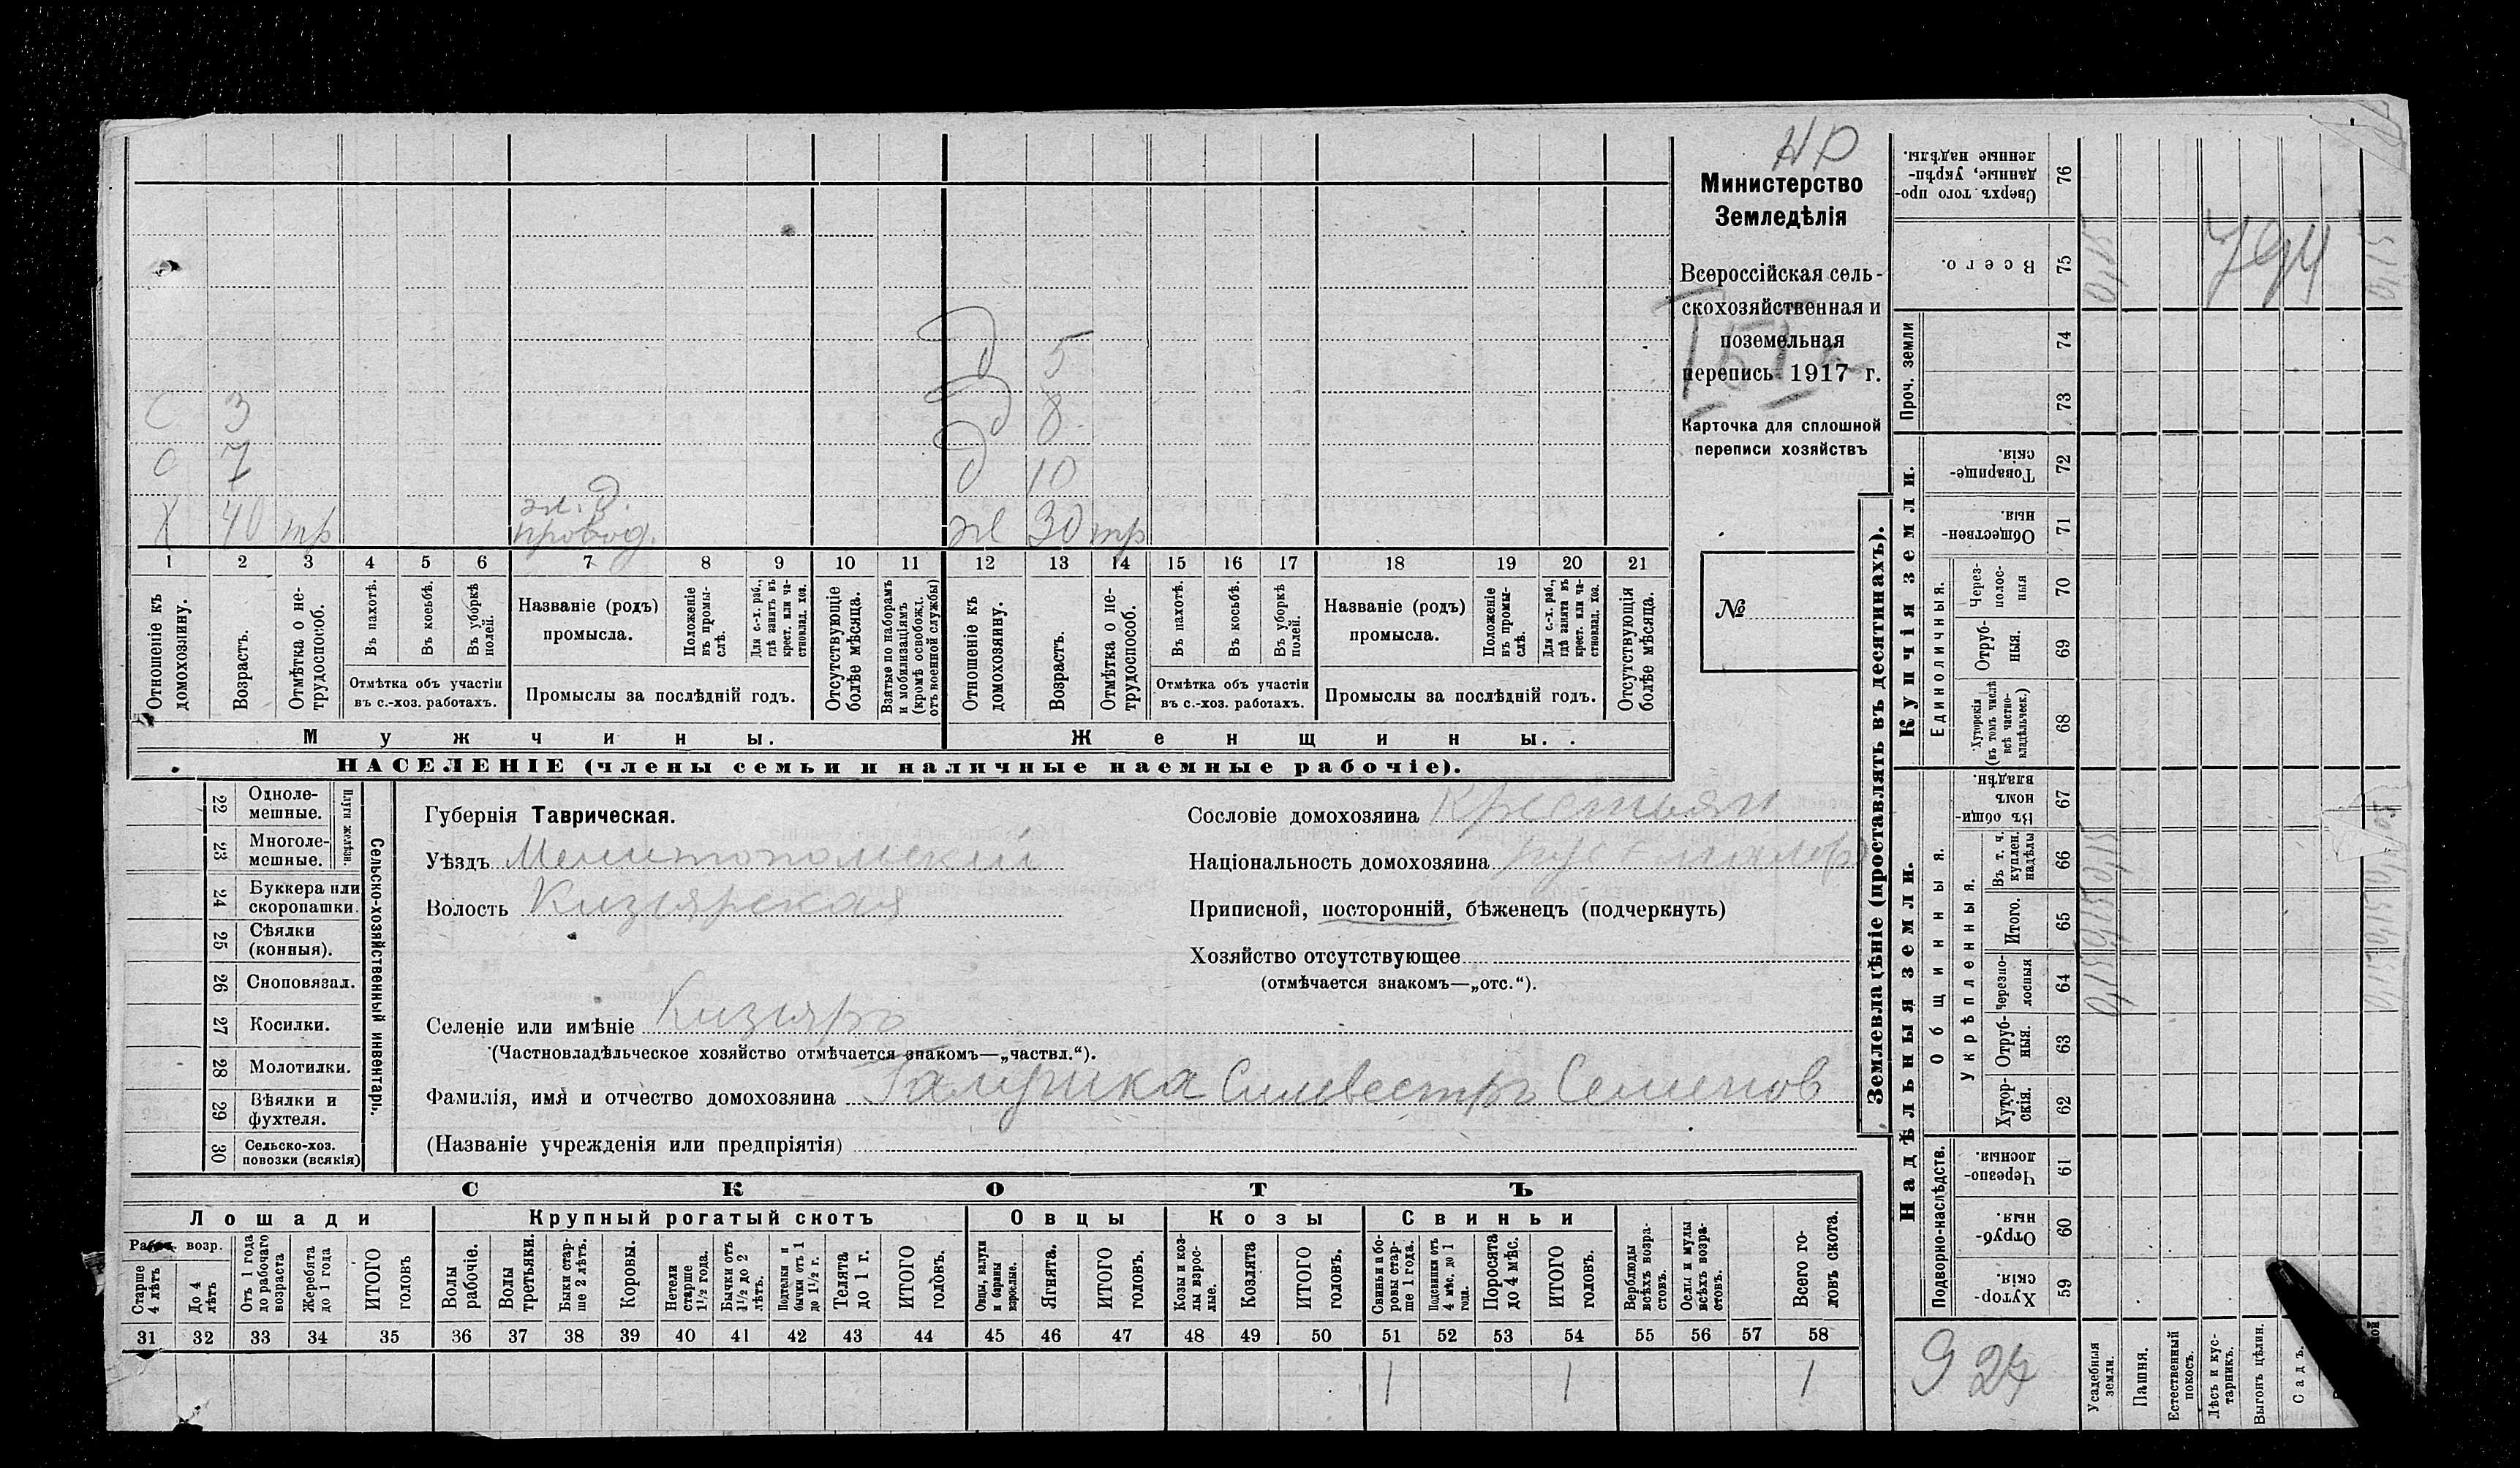 НР
Министерство
Земледѣлія
Всероссійская сель-
скохозяйственная и
поземельная
перепись 1917 г.
Карточка для сплошной
переписи хозяйствъ
№
д 5
С 3 д 8
С 7 д 10
Х 40 тр ж. д. провод. ж 30 тр
1 2 3 4 5 6 7 8 9 10 11 12 13 14 15 16 17 18 19 20 21
Отношеніе къ домохозяину.
Возрастъ.
Отмѣтка о не-трудоспособ.
Въ пахотѣ.
Въ косьбѣ.
Въ уборкѣ полей.
Отмѣтка объ участіи въ с.-хоз. работахъ.
Названіе (родъ) промысла.
Положеніе въ промы-слѣ.
Для с.-х. раб., гдѣ занятъ въ крест. или ча-стновлад. хоз.
Промыслы за послѣдній годъ.
Отсутствующіе болѣе мѣсяца.
Взятые по наборамъ и мобилизаціямъ (кромѣ освобожд. отъ военной службы)
Отношеніе къ домохозяину.
Возрастъ.
Отмѣтка о не-трудоспособ.
Въ пахотѣ.
Въ косьбѣ.
Въ уборкѣ полей.
Отмѣтка объ участіи въ с.-хоз. работахъ.
Названіе (родъ) промысла.
Положеніе въ промы-слѣ.
Для с.-х. раб., гдѣ занята въ крест. или ча-стновлад. хоз.
Промыслы за послѣдній годъ.
Отсутствующія болѣе мѣсяца.
Мужчины. Женщины.
НАСЕЛЕНІЕ (члены семьи и наличные наемные рабочіе).
22 Одноле-мешные.
23 Многоле-мешные.
Плуги желѣзн.
24 Буккера или скоропашки.
25 Сѣялки (конныя).
26 Сноповязал.
27 Косилки.
28 Молотилки.
29 Вѣялки и фухтеля.
30 Сельско-хоз. повозки (всякія)
Сельско-хозяйственный инвентарь.
Губернія Таврическая.
Уѣздъ Мелитопольскій
Волость Кизіярская
Селеніе или имѣніе Кизіяръ
(Частновладѣльческое хозяйство отмѣчается знакомъ—„частвл.“).
Фамилія, имя и отчество домохозяина Галушка Силвестръ Семенов
(Названіе учрежденія или предпріятія)
Сословіе домохозяина Крестьян
Національность домохозяина
Приписной, посторонній, бѣженецъ (подчеркнуть)
Хозяйство отсутствующее
(отмѣчается знакомъ—„отс.“).
СКОТЪ
Лошади Крупный рогатый скотъ Овцы Козы Свиньи
Рабоч. возр.
Старше 4 лѣтъ
До 4 лѣтъ
Отъ 1 года до рабочаго возраста
Жеребята до 1 года
ИТОГО головъ
Волы рабочіе.
Волы третьяки.
Быки стар-ше 2 лѣтъ.
Коровы.
Нетели старше 1½ года.
Бычки отъ 1½ до 2 лѣтъ.
Подтелки и бычки отъ 1 до 1½ г.
Телята до 1 г.
ИТОГО головъ.
Овцы, валухи и бараны взрослые.
Ягнята.
ИТОГО головъ.
Козы и коз-лы взрос-лые.
Козлята
ИТОГО головъ.
Свиньи и бо-ровы стар-ше 1 года.
Подсвинки отъ 4 мѣс. до 1 года.
Поросята до 4 мѣс.
ИТОГО головъ.
Верблюды всѣхъ возра-стовъ.
Ослы и мулы всѣхъ возра-стовъ.
Всего го-ловъ скота.
31 32 33 34 35 36 37 38 39 40 41 42 43 44 45 46 47 48 49 50 51 52 53 54 55 56 57 58
1 1 1
Землевладѣніе (проставлять въ десятинахъ).
Надѣльныя земли. Купчія земли. Проч. земли
Подворно-наслѣдств.
Общинныя.
Укрѣпленныя.
Единоличныя.
Хутор-скія. 59
Отруб-ныя. 60
Черезпо-лосныя. 61
Хутор-скія. 62
Отруб-ныя. 63
Черезпо-лосныя 64
Итого. 65
Въ т. ч. куплен. надѣлы 66
Въ общи-номъ владѣн. 67
Хуторскія (въ томъ числѣ всѣ частно-владѣльческ.) 68
Отруб-ныя. 69
Через-полос-ныя 70
Обществен-ныя. 71
Товарище-скія. 72
73
74
Всего. 75
Сверхъ того про-данные, укрѣп-ленные надѣлы. 76
794
924
Усадебныя земли.
Пашня.
Естественный покосъ.
Лѣсъ и кус-тарникъ.
Выгонъ цѣлин.
Садъ.